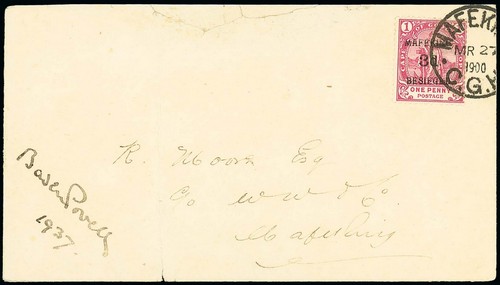 MAFEKI
MR 27
1900
C.G.H
1
CAPE OF G
MAFEKI
3d.
BESIEGED
ONE PENNY
POSTAGE
R. Moore Esq
Co W W & Co
Mafeking
Baden Powell
1937.